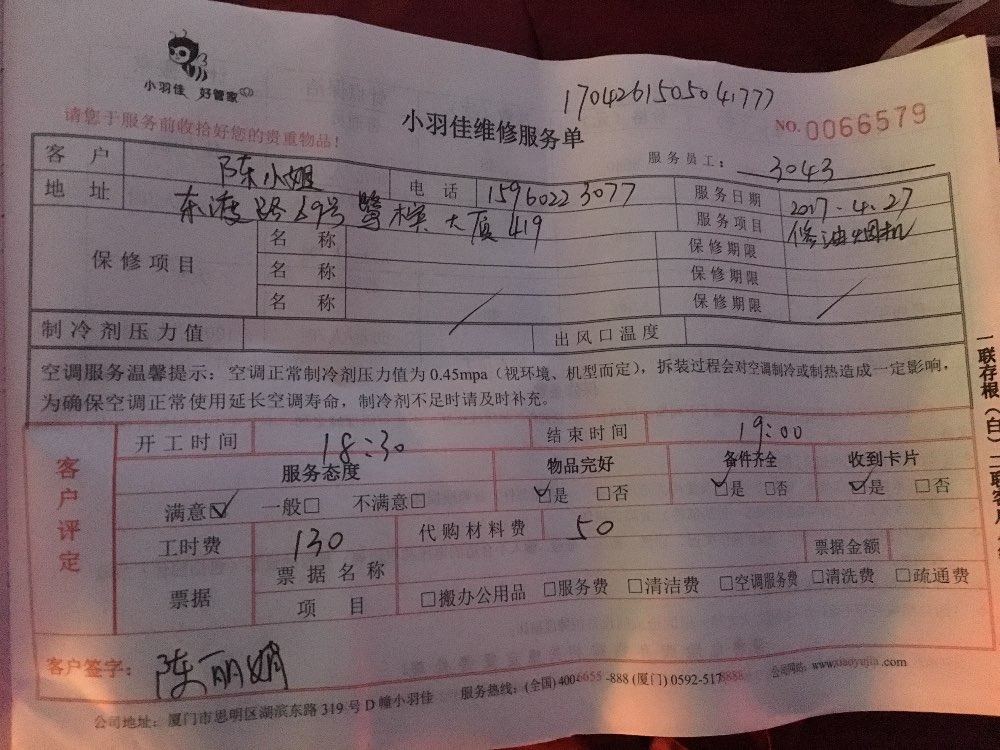 小羽佳 好管家
17042615050 41777
小羽佳维修服务单
NO. 0066579
请您于服务前收拾好您的贵重物品！
服务员工： 3043
客户 陈小姐 电话 15960223077 服务日期 2017.4.27
地址 东渡路69号鹭榕大厦419 服务项目 修油烟机
保修项目
名称 保修期限
名称 保修期限
名称 保修期限
制冷剂压力值 出风口温度
空调服务温馨提示：空调正常制冷剂压力值为0.45mpa（视环境、机型而定），拆装过程会对空调制冷或制热造成一定影响，
为确保空调正常使用延长空调寿命，制冷剂不足时请及时补充。
客户评定
开工时间 18:30 结束时间 19:00
服务态度 物品完好 备件齐全 收到卡片
满意☑ 一般□ 不满意□ ☑是 □否 ☑是 □否 ☑是 □否
工时费 130 代购材料费 50
票据 票据名称 票据金额
项目 □搬办公用品 □服务费 □清洁费 □空调服务费 □清洗费 □疏通费
客户签字： 陈丽娟
公司地址：厦门市思明区湖滨东路319号D幢小羽佳 服务热线：(全国) 400-6655-888 (厦门) 0592-5178888 公司网站：www.xiaoyujia.com
一联存根（白）二联客